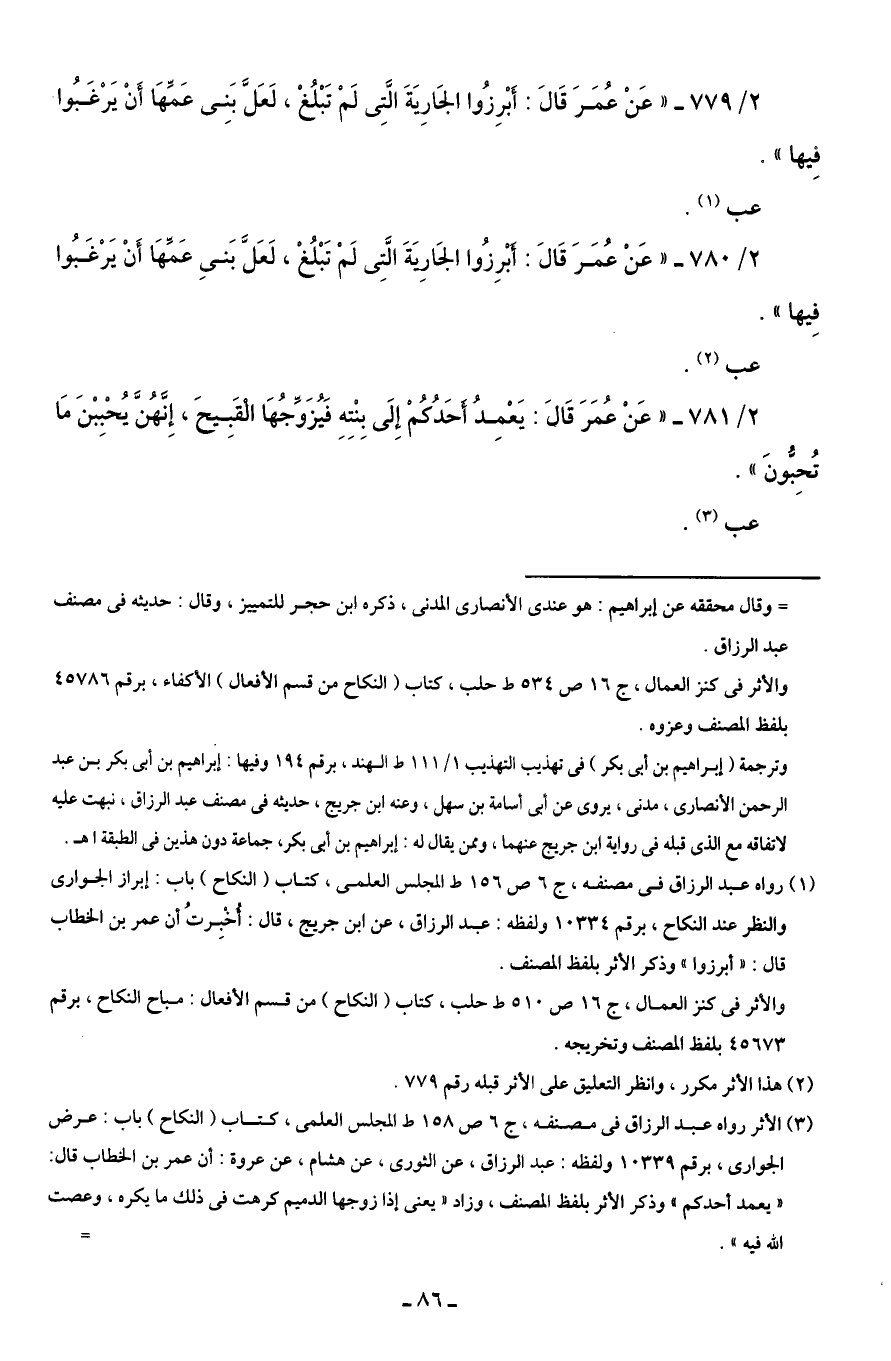 ٢/ ٧٧٩ ـ « عَنْ عُمَـرَ قَالَ : أَبْرِزُوا الجَارِيَةَ الَّتِى لَمْ تَبْلُغْ ، لَعَلَّ بَنِـى عَمِّهَا أَنْ يَرْغَـبُوا
فِيها » .
عب (١) .
٢/ ٧٨٠ ـ « عَنْ عُمَـرَ قَالَ : أَبْرِزُوا الجَارِيَةَ الَّتِى لَمْ تَبْلُغْ ، لَعَلَّ بَنـىِ عَمِّهَا أَنْ يَرْغَـبُوا
فِيها » .
عب (٢) .
٢/ ٧٨١ ـ « عَنْ عُمَرَ قَالَ : يَعْمِـدُ أَحَدُكُمْ إِلَى بِنْتِهِ فَيُزَوِّجُهَا الْقَبِـيحَ ، إِنَّهُنَّ يُحْبِبْنَ مَا
تُحِبُّونَ » .
عب (٣) .
= وقال محققه عن إبراهيم : هو عندى الأنصارى المدنى ، ذكره ابن حجـر للتمييز ، وقال : حديثه فى مصنف
عبد الرزاق .
والأثر فى كنز العمال ، ج ١٦ ص ٥٣٤ ط حلب ، كتاب ( النكاح من قسم الأفعال ) الأكفاء ، برقم ٤٥٧٨٦
بلفظ المصنف وعزوه .
وترجمة ( إبـراهيم بن أبى بكر ) فى تهذيب التهذيب ١/ ١١١ ط الـهند ، برقم ١٩٤ وفيها : إبراهيم بن أبى بكر بـن عبد
الرحمن الأنصارى ، مدنى ، يروى عن أبى أسامة بن سهل ، وعنه ابن جريج ، حديثه فى مصنف عبد الرزاق ، نبهت عليه
لاتفاقه مع الذى قبله فى رواية ابن جريج عنهما ، وممن يقال له : إبراهيم بن أبى بكر، جماعة دون هذين فى الطبقة ا هـ .
(١) رواه عـبد الرزاق فـى مصنفـه ، ج ٦ ص ١٥٦ ط المجلس العلمـى ، كتـاب ( النكاح ) باب : إبراز الجـوارى
والنظر عند النكاح ، برقم ١٠٣٣٤ ولفظه : عبـد الرزاق ، عن ابن جريج ، قال : أُخْبِـرتُ أن عمر بن الخطاب
قال : « أبرزوا » وذكر الأثر بلفظ المصنف .
والأثر فى كنز العمـال ، ج ١٦ ص ٥١٠ ط حلب ، كتاب ( النكاح ) من قـسم الأفعال : مـباح النكاح ، برقم
٤٥٦٧٣ بلفظ المصنف وتخريجه .
(٢) هذا الأثر مكرر ، وانظر التعليق على الأثر قبله رقم ٧٧٩ .
(٣) الأثر رواه عـبـد الرزاق فى مـصـنفـه ، ج ٦ ص ١٥٨ ط المجلس العلمى ، كـتـاب ( النكاح ) باب : عـرض
الجوارى ، برقم ١٠٣٣٩ ولفظه : عبد الرزاق ، عن الثورى ، عن هشام ، عن عروة : أن عمر بن الخطاب قال:
« يعمد أحدكم » وذكر الأثر بلفظ المصنف ، وزاد « يعنى إذا زوجها الدميم كرهت فى ذلك ما يكره ، وعصت
الله فيه » .
=
ـ ٨٦ ـ